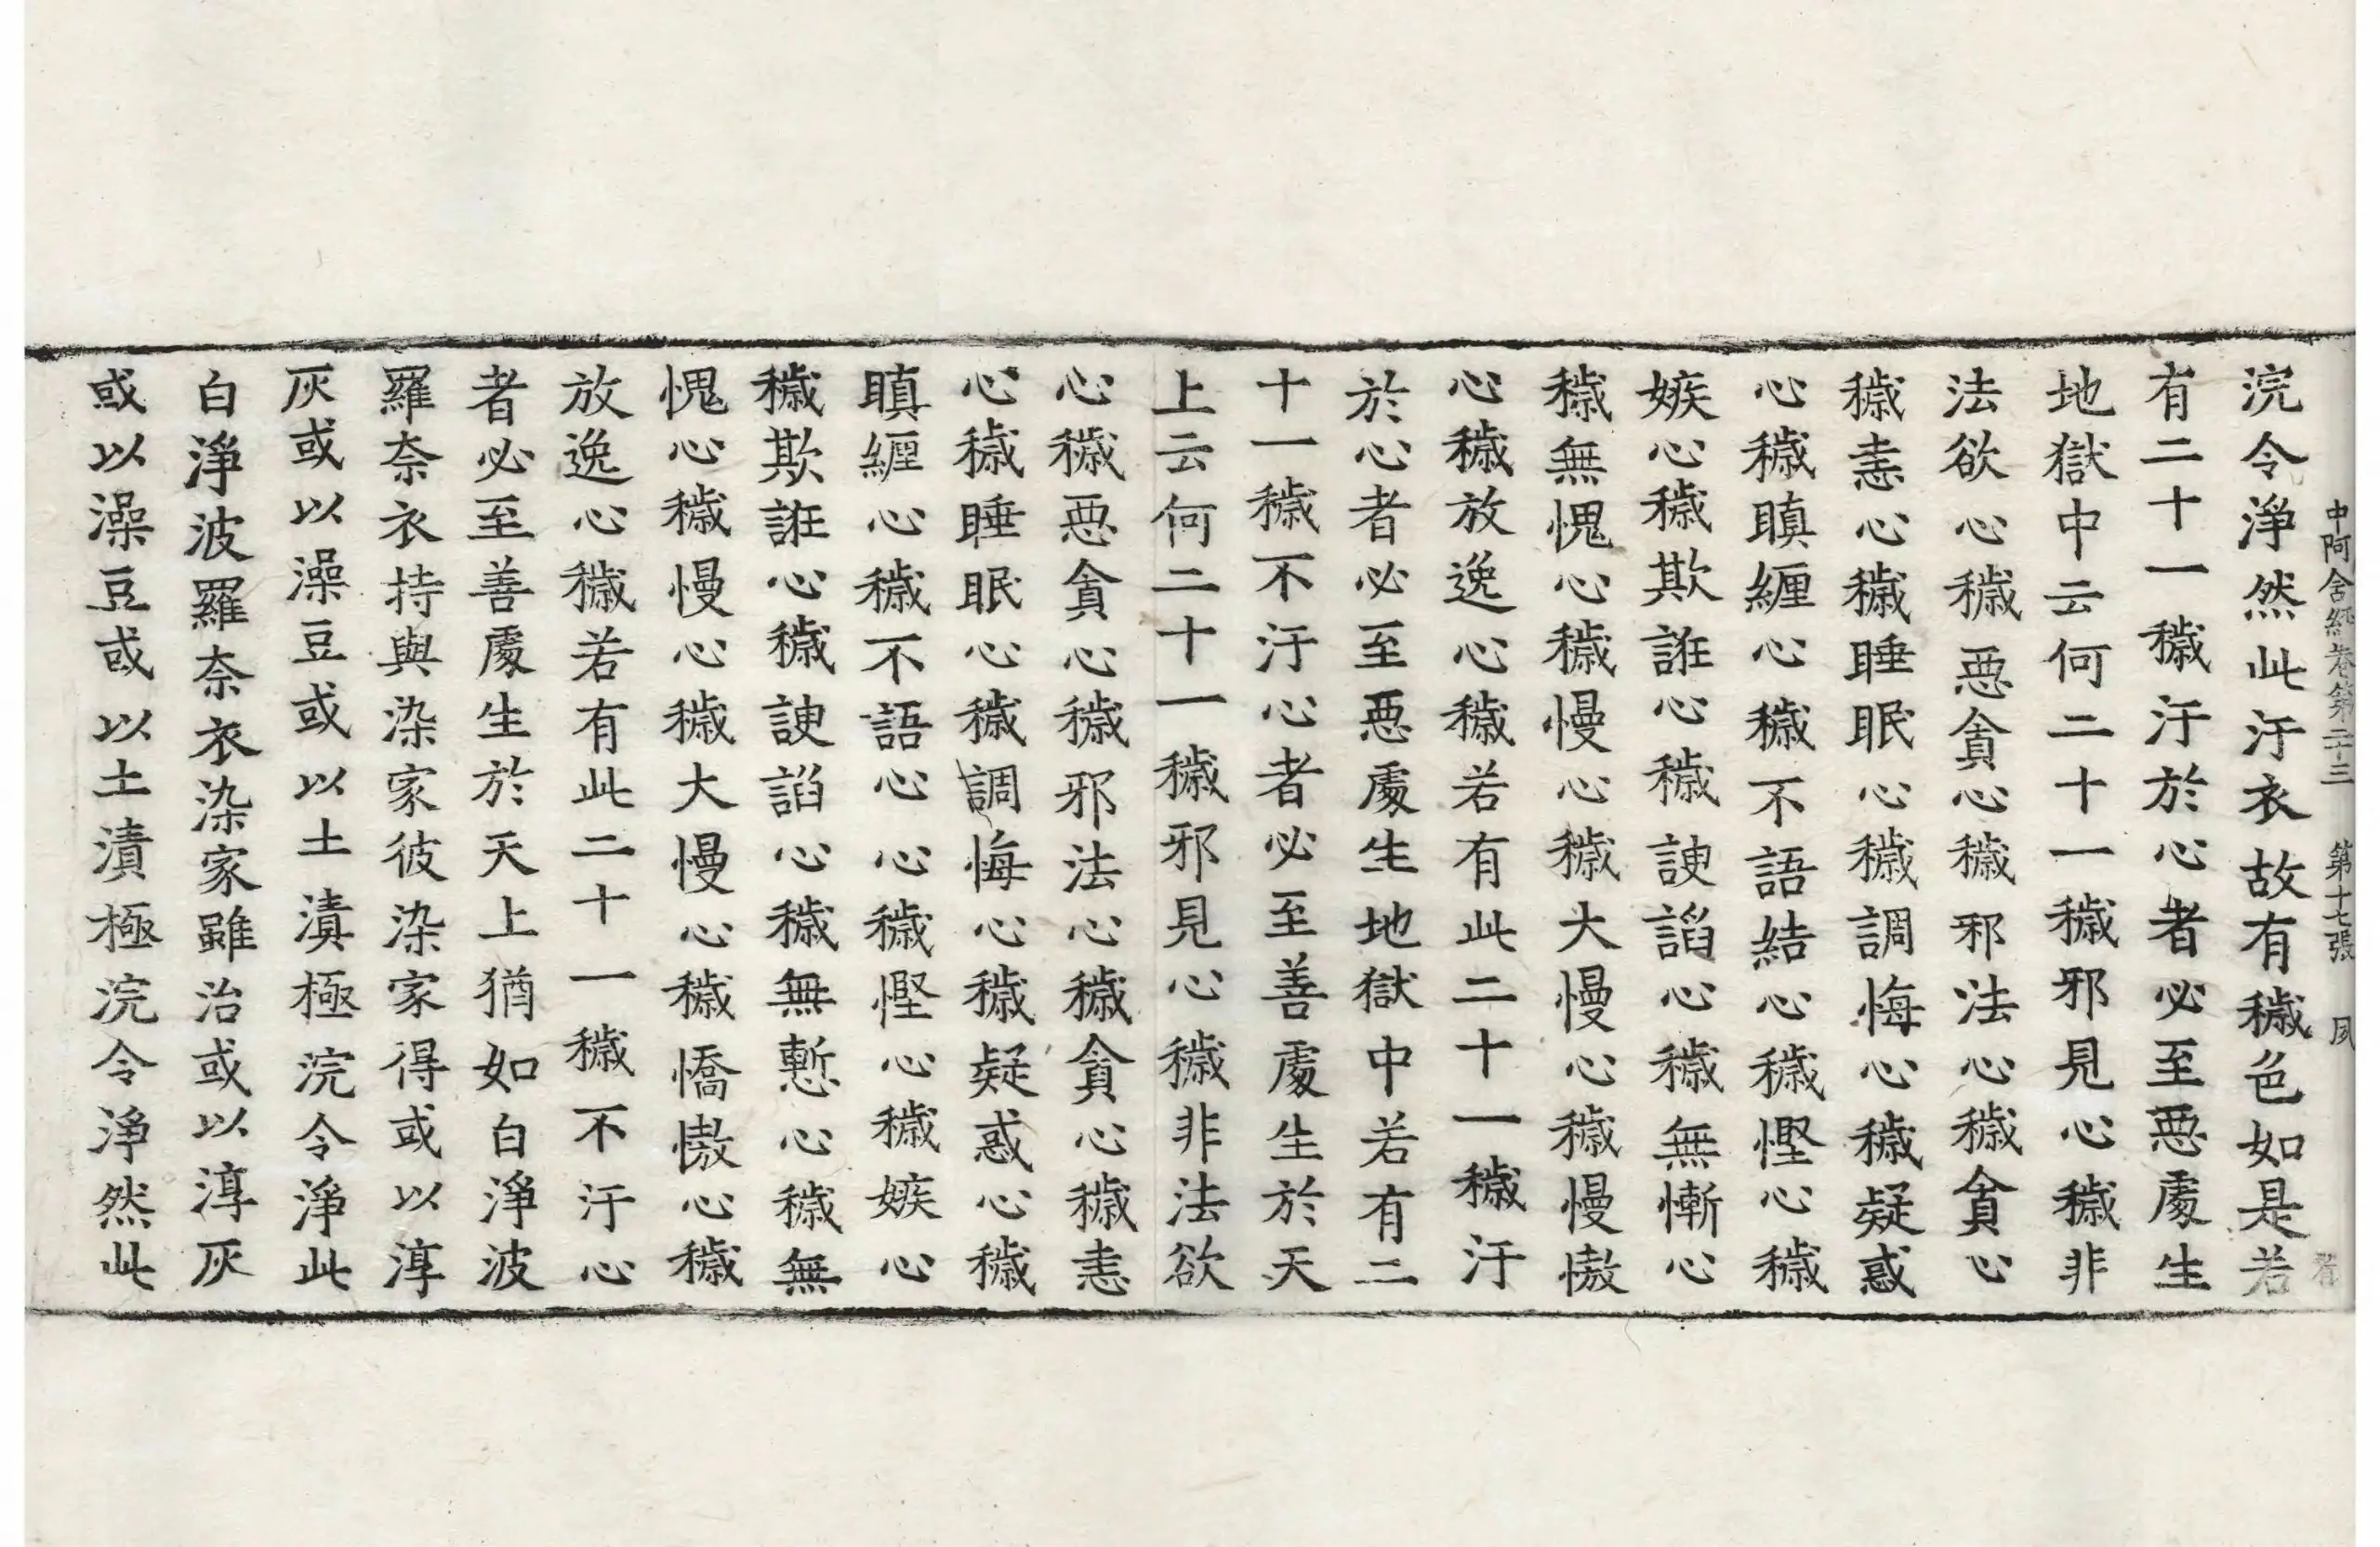 中阿含經卷第二十三 第十七張 夙
浣令淨然此汙衣故有穢色如是若
有二十一穢汙於心者必至惡處生
地獄中云何二十一穢邪見心穢非
法欲心穢惡貪心穢邪法心穢貪心
穢恚心穢睡眠心穢調悔心穢疑惑
心穢瞋纏心穢不語結心穢慳心穢
嫉心穢欺誑心穢諛諂心穢無慚心
穢無愧心穢慢心穢大慢心穢慢慠
心穢放逸心穢若有此二十一穢汙
於心者必至惡處生地獄中若有二
十一穢不汙心者必至善處生於天
上云何二十一穢邪見心穢非法欲
心穢惡貪心穢邪法心穢貪心穢恚
心穢睡眠心穢調悔心穢疑惑心穢
瞋纏心穢不語心心穢慳心穢嫉心
穢欺誑心穢諛諂心穢無慙心穢無
愧心穢慢心穢大慢心穢憍慠心穢
放逸心穢若有此二十一穢不汙心
者必至善處生於天上猶如白淨波
羅奈衣持與染家彼染家得或以淳
灰或以澡豆或以土漬極浣令淨此
白淨波羅奈衣染家雖治或以淳灰
或以澡豆或以土漬極浣令淨然此